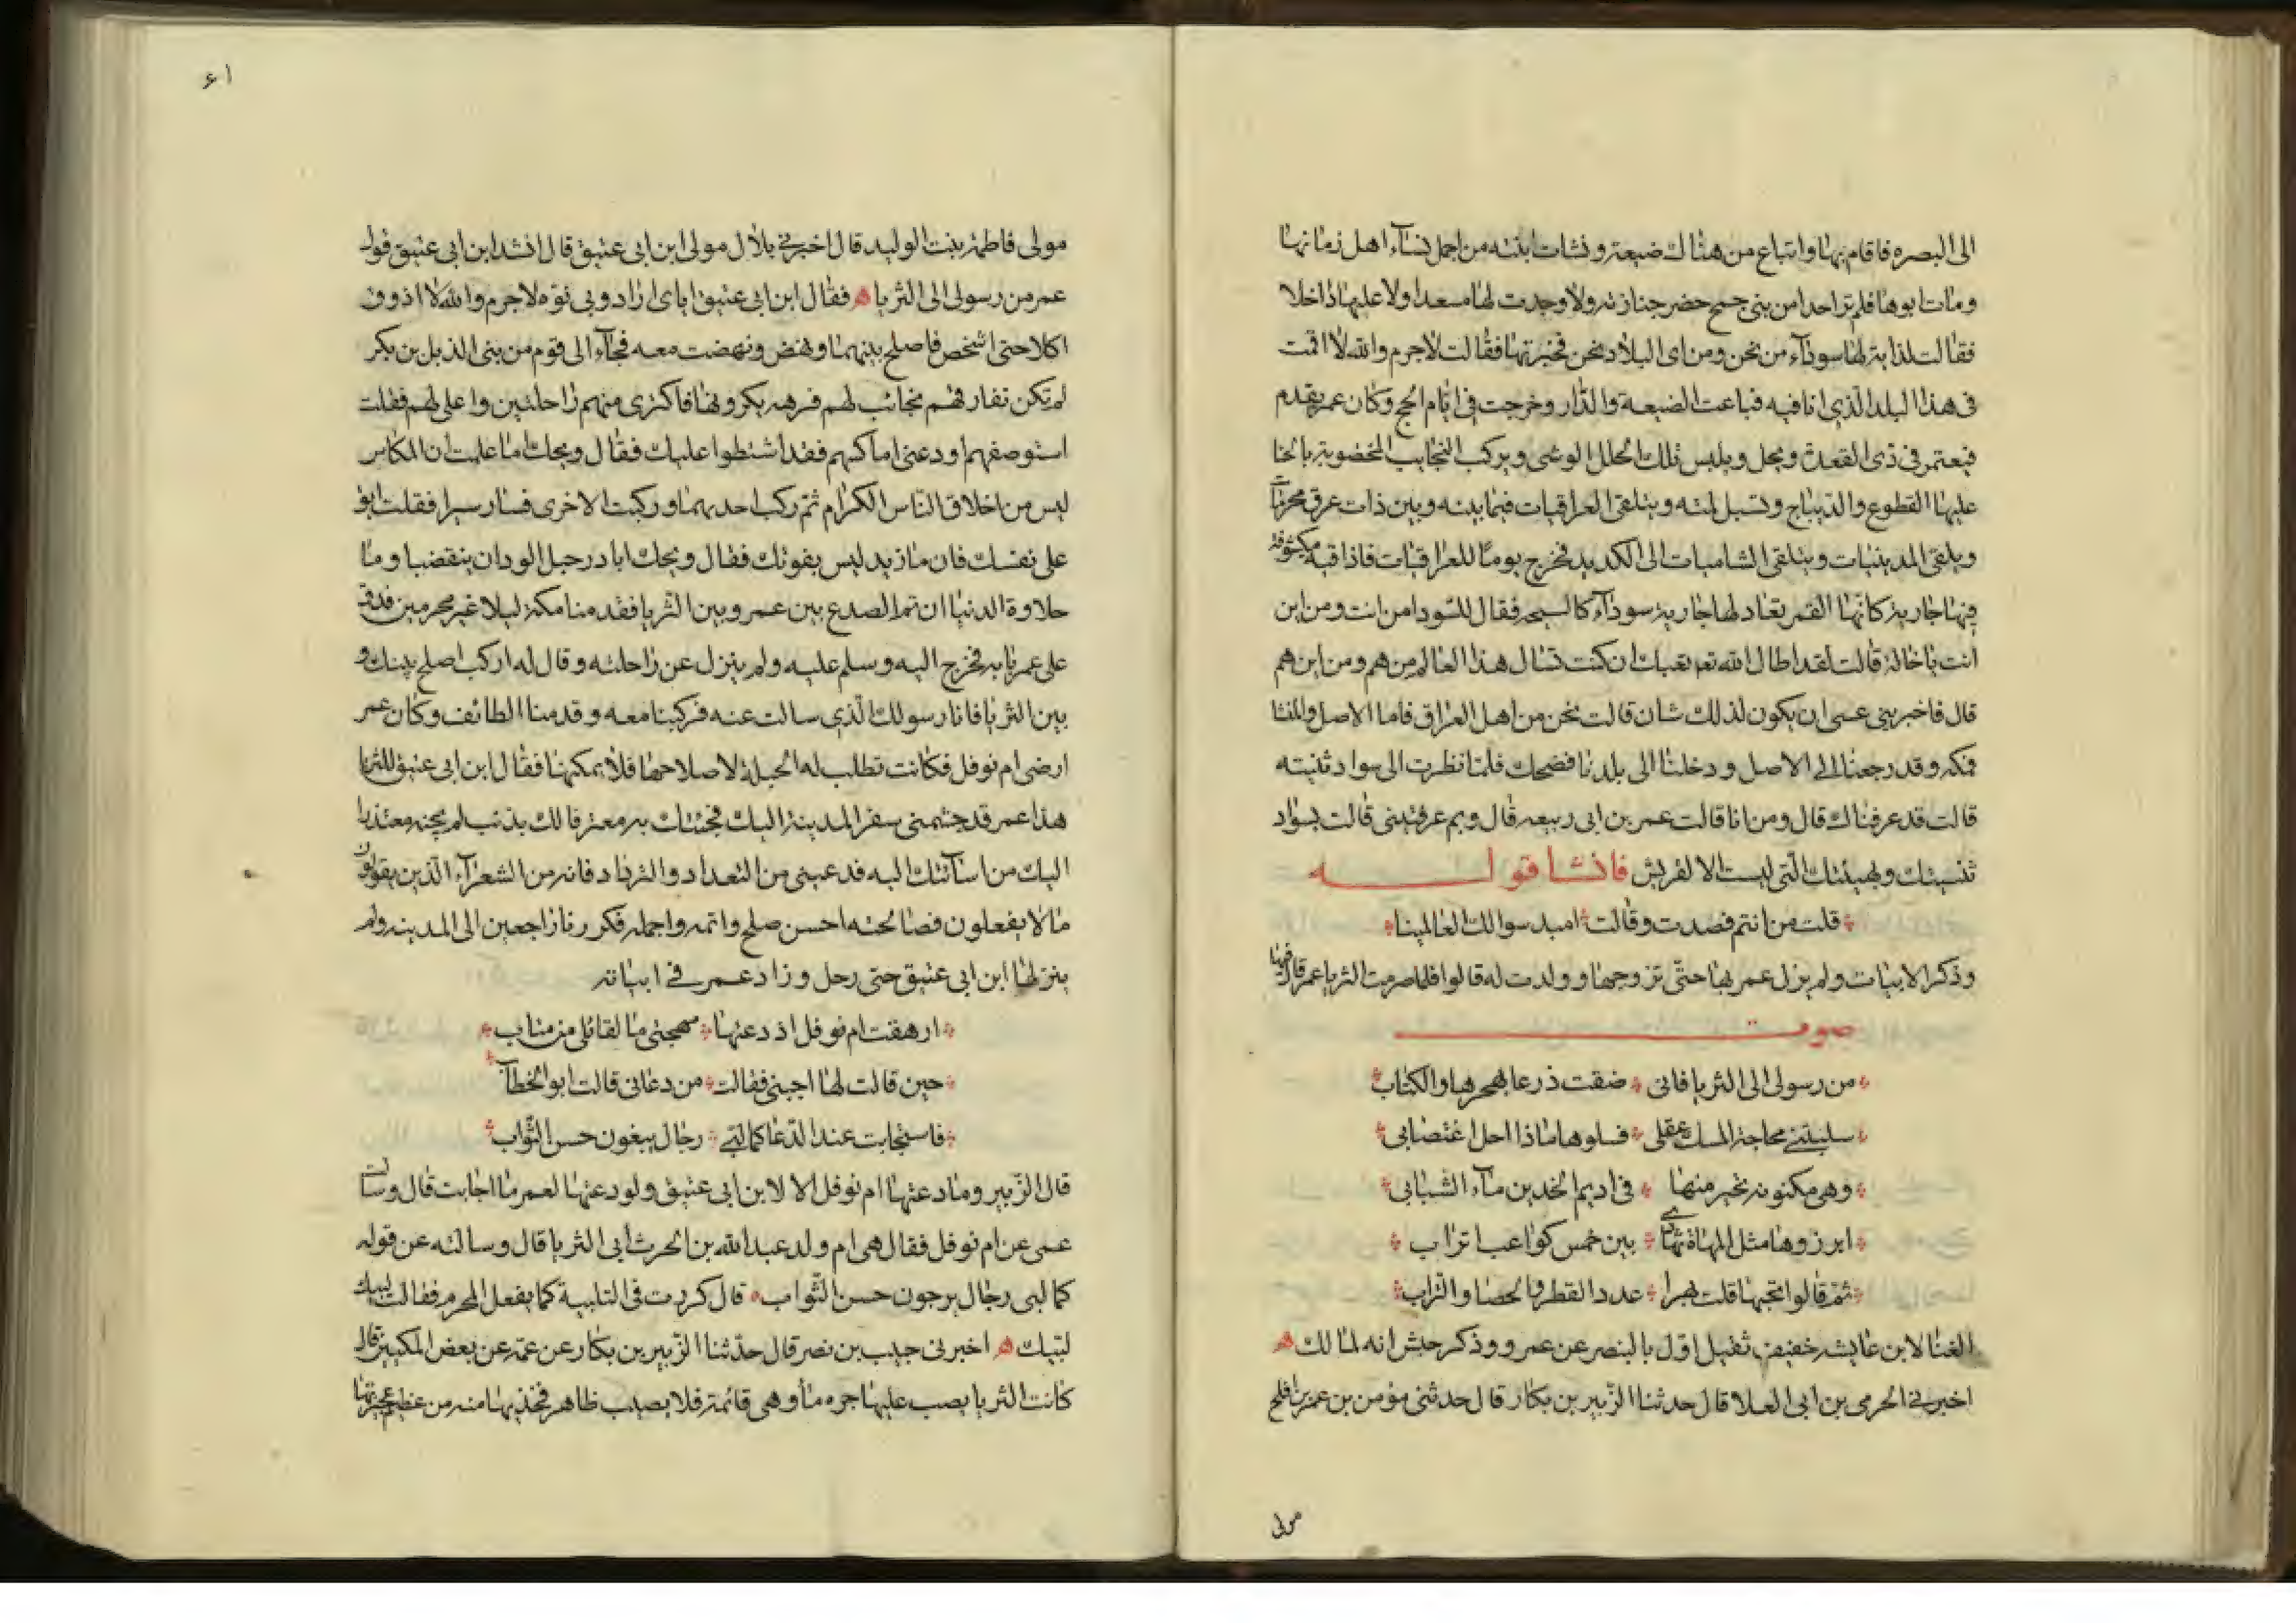 الى البصره فاقام بها وابتاع من هناك ضيعة ونشات ابنته من اجمل نسآء اهل زمانها
ومات ابوها فلم تر احدا من بنى جمح حضر جنازته ولا وجدت لها مسعدا ولا عليها داخلا
فقالت لداية لها سودآء من نحن ومن اى البلاد نحن فخبرتها فقالت لا جرم والله لا اقمت
فى هذا البلد الذى انا فيه فباعت الضيعة والدار وخرجت فى ايام الحج وكان عمر يقدم
فيعتمر فى ذى القعدة ويحل ويلبس تلك الحلل الوشى ويركب النجايب المخضوبة بالحنا
عليها القطوع والديباج ويسبل لمته ويتلقى العراقيات فيما بينه وبين ذات عرق محرمات
ويلقى المدينيات ويتلقى الشاميات الى الكديد فخرج يوما للعراقيات فاذا قبة مكشوفة
فيها جارية كانها القمر تعادلها جارية سودآء كالسبحه فقال للسودا من انت ومن اين
انت يا خالة قالت لقد اطال الله تعبك ان كنت تسال هذا العالم من هم ومن اين هم
قال فاخبرينى عسى ان يكون لذلك شان قالت نحن من اهل العراق فاما الاصل والمنشا
فمكه وقد رجعنا الى الاصل ودخلنا الى بلدنا فضحك فلما نظرت الى سواد ثنيته
قالت قد عرفناك قال ومن انا قالت عمر بن ابى ربيعه قال وبم عرفتينى قالت بسواد
ثنيتك وبهيئتك التى ليست الا لقريش فانشا قوله
قلت من انتم فصدت وقالت * امبد سوالك العالمينا
وذكر الابيات ولم يزل عمر بها حتى تزوجها وولدت له قالوا فلما صرمت الثريا عمر قال فيها
صوت
من رسولى الى الثريا فانى * ضقت ذرعا بهجرها والكتاب
سلبتنى مجاجة المسك عقلى * فسلوها ماذا احل اغتصابى
وهى مكنونة تحير منها * فى اديم الخدين مآء الشبابى
ابرزوها مثل المهاة تهادى * بين خمس كواعب اتراب
ثم قالوا تحبها قلت بهرا * عدد القطر والحصا والتراب
الغنا لابن عايشه خفيف ثقيل اول بالبنصر عن عمرو وذكر حبش انه لمالك
اخبرنى الحرمى بن ابى العلا قال حدثنا الزبير بن بكار قال حدثنى مؤمن بن عمر بن افلح
مولى
٦١
مولى فاطمة بنت الوليد قال اخبرنى بلال مولى ابن ابى عتيق قال انشد ابن ابى عتيق قول
عمر من رسولى الى الثريا فقال ابن ابى عتيق اياى اراد وبى نوه لا جرم والله لا اذوق
اكلا حتى اشخص فاصلح بينهما ونهض ونهضت معه فجآء الى قوم من بنى الديل بن بكر
لم تكن تفارقهم نجائب لهم فرهه يكرونها فاكترى منهم راحلتين واغلى لهم فقلت
استوضعهم او دعنى اماكسهم فقد اشتطوا عليك فقال ويحك ما علمت ان المكاس
ليس من اخلاق الناس الكرام ثم ركب احديهما وركبت الاخرى فسار سيرا فقلت ابق
على نفسك فان ما تريد ليس يفوتك فقال ويحك ابادر حبل الود ان ينقضبا وما
حلاوة الدنيا ان تم الصدع بين عمر وبين الثريا فقدمنا مكة ليلا غير محرمين فدق
على عمر بابه فخرج اليه وسلم عليه ولم ينزل عن راحلته وقال له اركب اصلح بينك و
بين الثريا فانا رسولك الذى سالت عنه فركبنا معه وقدمنا الطائف وكان عمر
ارضى ام نوفل فكانت تطلب له الحيلة لاصلاحها فلا يمكنها فقال ابن ابى عتيق للثريا
هذا عمر قد جشمنى سفر المدينة اليك فجئتك به معترفا لك بذنب لم يجنه معتذرا
اليك من اسآئتك اليه فدعينى من التعداد والترداد فانه من الشعرآء الذين يقولون
ما لا يفعلون فصالحته احسن صلح واتمه واجمله فكررنا راجعين الى المدينه ولم
ينزلها ابن ابى عتيق حتى رحل وزاد عمر فى ابياته
ارهقت ام نوفل اذ دعتها * مهجتى ما لقاتلى من متاب
حين قالت لها اجيبى فقالت * من دعانى قالت ابو الخطاب
فاستجابت عند الدعا كما لبى * رجال يبغون حسن الثواب
قال الزبير وما دعتها ام نوفل الا لابن ابى عتيق ولو دعتها لعمر ما اجابت قال وسالت
عمى عن ام نوفل فقال هى ام ولد عبد الله بن الحرث ابى الثريا قال وسالته عن قوله
كما لبى رجال يرجون حسن الثواب قال كررت فى التلبية كما يفعل المحرم فقالت لبيك
لبيك اخبرنى حبيب بن نصر قال حدثنا الزبير بن بكار عن عمه عن بعض المكيين قال
كانت الثريا يصب عليها جره مآ وهى قائمة فلا يصيب ظاهر فخذيها منه من عظم عجيزتها